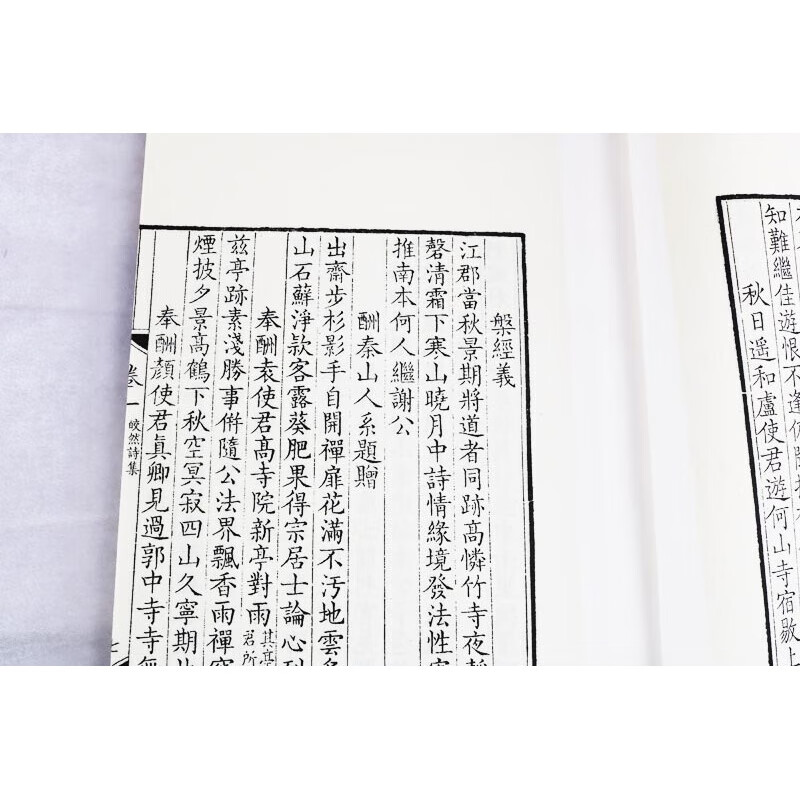 知難繼佳遊恨不逢
秋日遥和盧使君遊何山寺宿敭上
槃經義
江郡當秋景期將道者同跡高憐竹寺夜
磬清霜下寒山曉月中詩情緣境發法性
推南本何人繼謝公
酬秦山人系題贈
出齋步杉影手自開禪扉花滿不汚地雲
山石蘚淨欵客露葵肥果得宗居士論心
奉酬袁使君高寺院新亭對雨其亭君所
兹亭跡素淺勝事併隨公法界飄香雨禪
煙披夕景高鶴下秋空冥寂四山久寧期
奉酬顏使君真卿見過郭中寺寺
卷一 皎然詩集